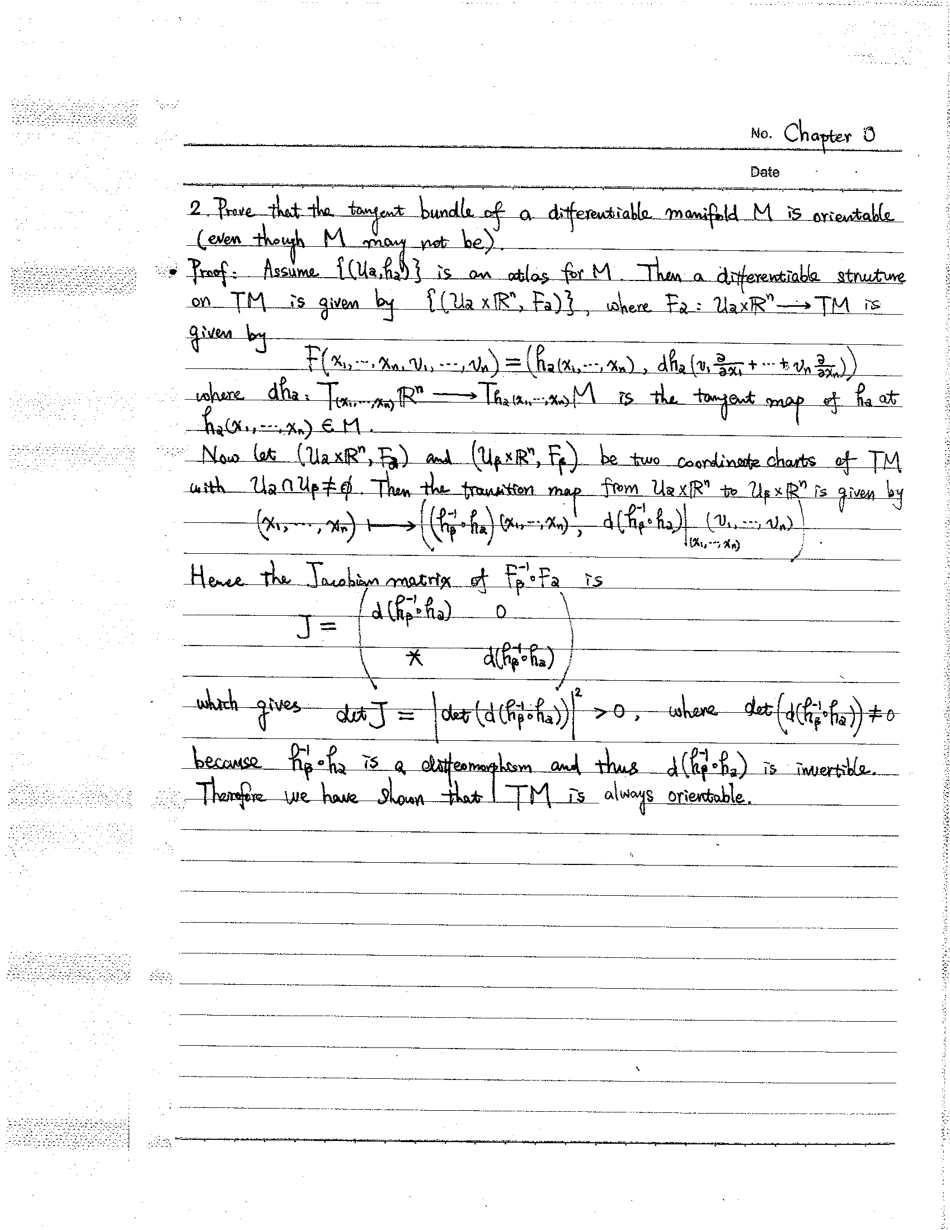 No. Chapter 0
Date
2. Prove that the tangent bundle of a differentiable manifold M is orientable
(even though M may not be).
• Proof: Assume {(Uα, hα)} is an atlas for M. Then a differentiable structure
on TM is given by {(Uα × ℝⁿ, Fα)}, where Fα : Uα×ℝⁿ ⟶ TM is
given by
F(x₁,⋯,xₙ, v₁,⋯,vₙ) = (hα(x₁,⋯,xₙ), dhα(v₁ ∂/∂x₁ + ⋯ + vₙ ∂/∂xₙ))
where dhα : T₍ₓ₁,⋯,ₓₙ₎ℝⁿ ⟶ T_{hα(x₁,⋯,xₙ)}M is the tangent map of hα at
hα(x₁,⋯,xₙ) ∈ M.
Now let (Uα×ℝⁿ, Fα) and (Uβ×ℝⁿ, Fβ) be two coordinate charts of TM
with Uα∩Uβ≠∅. Then the transition map from Uα×ℝⁿ to Uβ×ℝⁿ is given by
(x₁,⋯,xₙ) ⟼ ((hβ⁻¹∘hα)(x₁,⋯,xₙ), d(hβ⁻¹∘hα)|_{(x₁,⋯,xₙ)} (v₁,⋯,vₙ))
Hence the Jacobian matrix of Fβ⁻¹∘Fα is
d(hβ⁻¹∘hα) 0
J =
* d(hβ⁻¹∘hα)
which gives det J = |det(d(hβ⁻¹∘hα))|² > 0, where det(d(hβ⁻¹∘hα)) ≠ 0
because hβ⁻¹∘hα is a diffeomorphism and thus d(hβ⁻¹∘hα) is invertible.
Therefore we have shown that TM is always orientable.